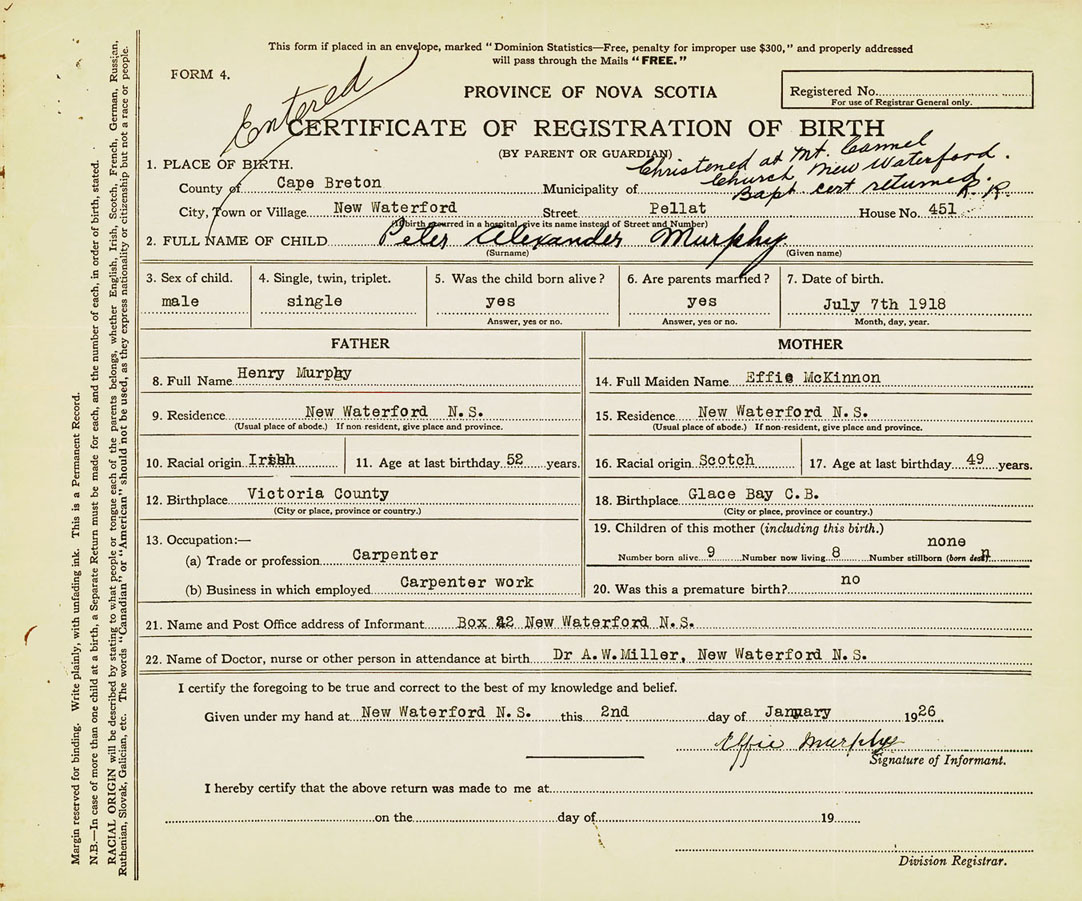 This form if placed in an envelope, marked "Dominion Statistics—Free, penalty for improper use $300," and properly addressed
will pass through the Mails "FREE."
FORM 4.
Entered
PROVINCE OF NOVA SCOTIA
Registered No.
For use of Registrar General only.
CERTIFICATE OF REGISTRATION OF BIRTH
(BY PARENT OR GUARDIAN)
Christened at Mt. Carmel
Church New Waterford.
Bapt cert returned. R.R.
1. PLACE OF BIRTH.
County of Cape Breton Municipality of
City, Town or Village New Waterford Street Pellat House No. 451
(If birth occurred in a hospital, give its name instead of Street and Number)
2. FULL NAME OF CHILD Peter Alexander Murphy
(Surname) (Given name)
3. Sex of child. male
4. Single, twin, triplet. single
5. Was the child born alive? yes
Answer, yes or no.
6. Are parents married? yes
Answer, yes or no.
7. Date of birth.
July 7th 1918
Month, day, year.
FATHER
8. Full Name Henry Murphy
9. Residence New Waterford N.S.
(Usual place of abode.) If non-resident, give place and province.
10. Racial origin Irish 11. Age at last birthday 52 years.
12. Birthplace Victoria County
(City or place, province or country.)
13. Occupation:—
(a) Trade or profession Carpenter
(b) Business in which employed Carpenter work
MOTHER
14. Full Maiden Name Effie McKinnon
15. Residence New Waterford N.S.
(Usual place of abode.) If non-resident, give place and province.
16. Racial origin Scotch 17. Age at last birthday 49 years.
18. Birthplace Glace Bay C.B.
(City or place, province or country.)
19. Children of this mother (including this birth.)
none
Number born alive 9 Number now living 8 Number stillborn (born dead) n
20. Was this a premature birth? no
21. Name and Post Office address of Informant Box 22 New Waterford N.S.
22. Name of Doctor, nurse or other person in attendance at birth Dr A.W.Miller, New Waterford N.S.
I certify the foregoing to be true and correct to the best of my knowledge and belief.
Given under my hand at New Waterford N.S. this 2nd day of January 1926
Effie Murphy
Signature of Informant.
I hereby certify that the above return was made to me at
on the day of 19
Division Registrar.
Margin reserved for binding. Write plainly, with unfading ink. This is a Permanent Record.
N.B.—In case of more than one child at a birth, a Separate Return must be made for each, and the number of each, in order of birth, stated.
RACIAL ORIGIN will be described by stating to what people or tongue each of the parents belongs, whether English, Irish, Scotch, French, German, Russian,
Ruthenian, Slovak, Galician, etc. The words "Canadian" or "American" should not be used, as they express nationality or citizenship but not a race or people.